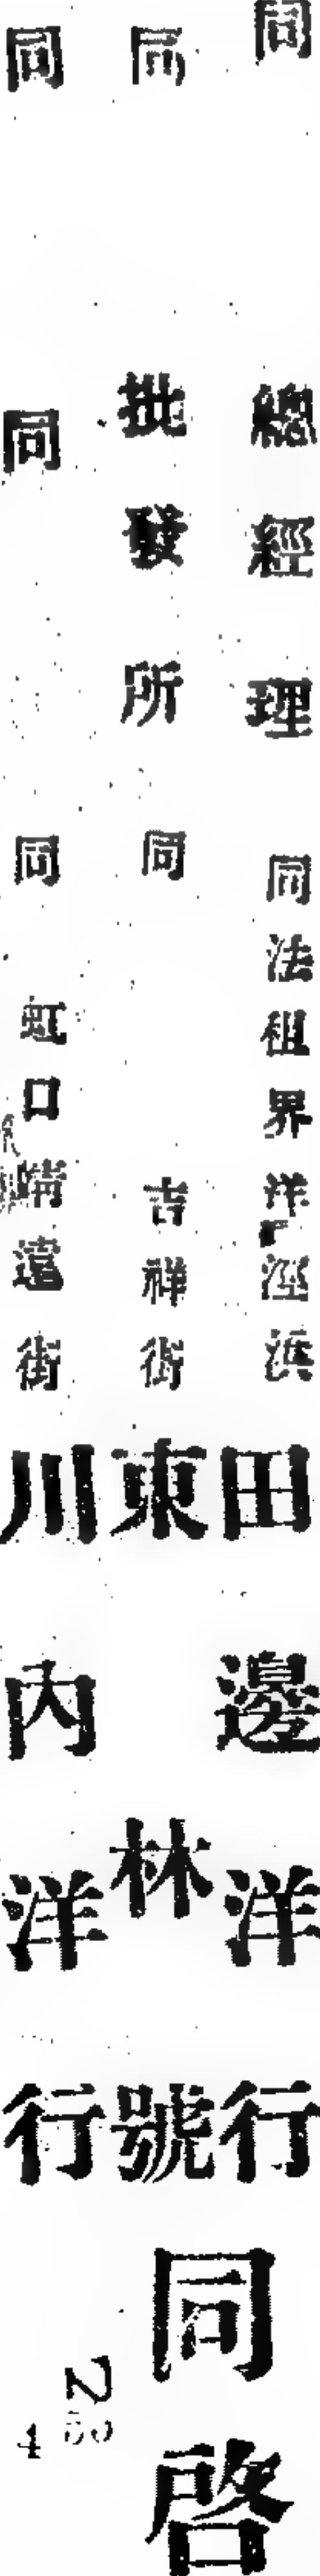 同 總經理 同法租界洋涇浜 田邊洋行
同 批發所 同 吉祥街 東林號
同 同 同 虹口靖遠街 川內洋行
同啓
4